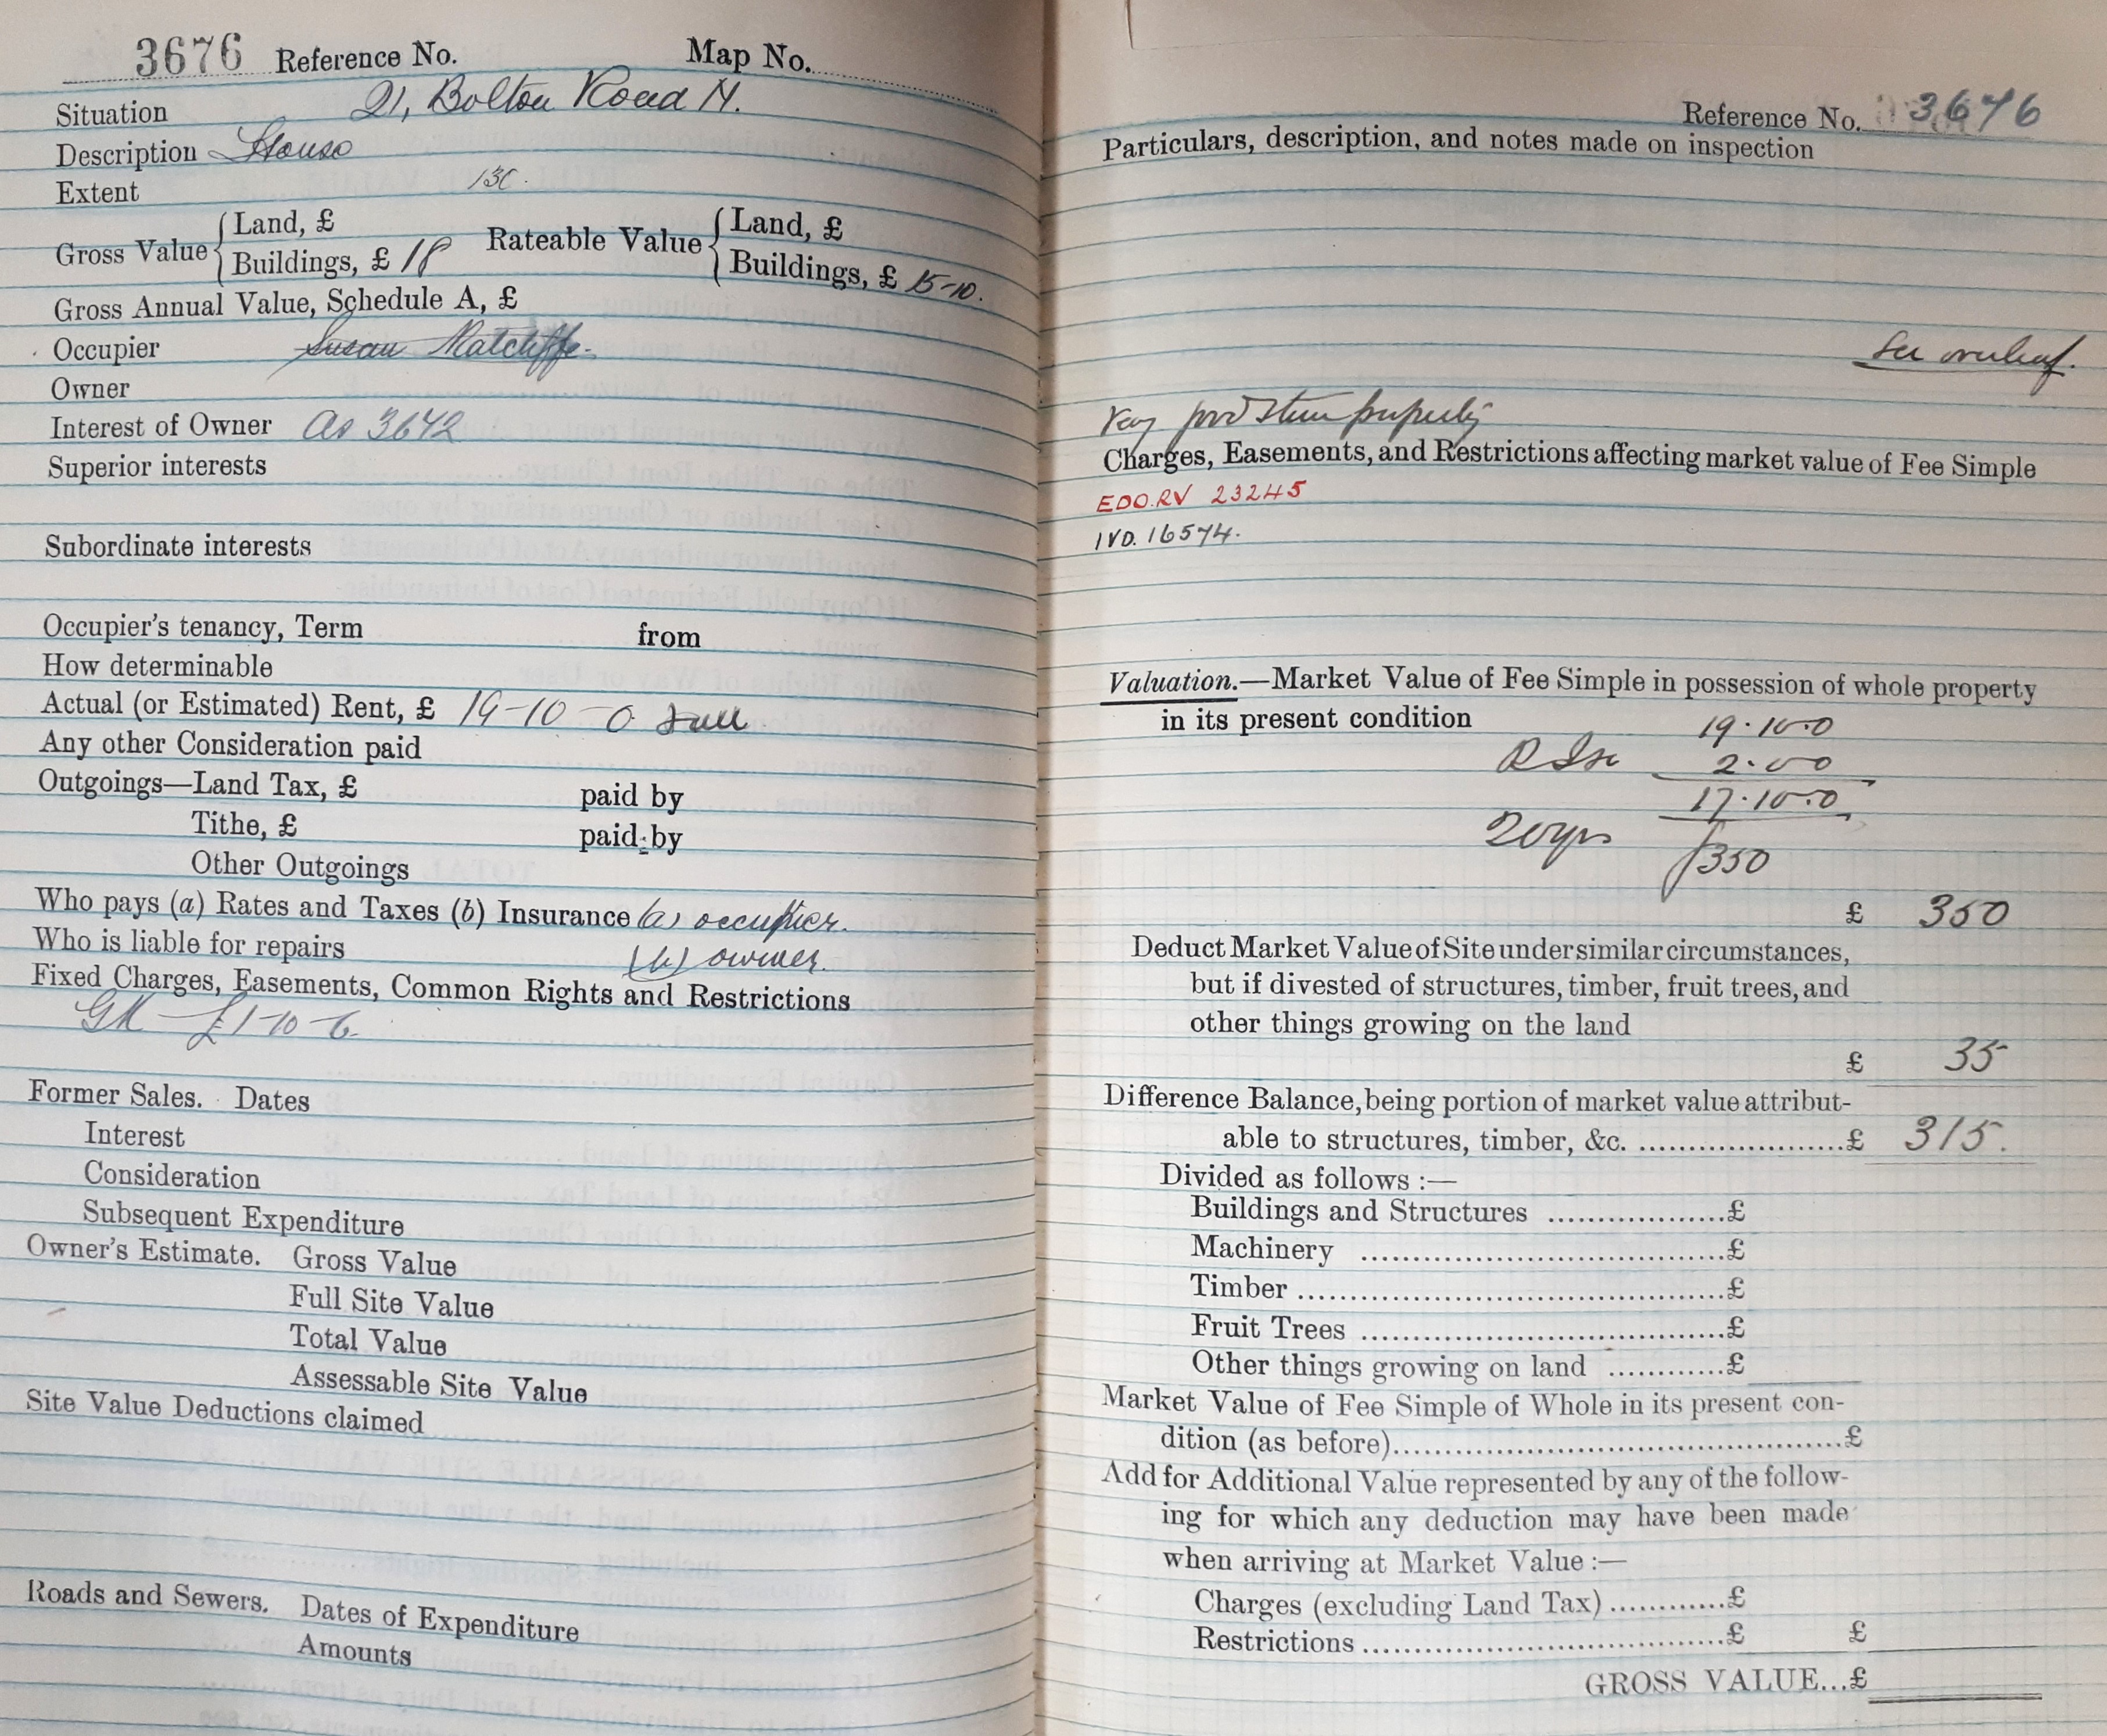 3676 Reference No. Map No.
Situation 21, Bolton Road N.
Description House
Extent 130.
Gross Value { Land, £ Rateable Value { Land, £
Buildings, £ 18 Buildings, £ 15-10.
Gross Annual Value, Schedule A, £
Occupier Susan Ratcliffe.
Owner
Interest of Owner as 3642
Superior interests
Subordinate interests
Occupier's tenancy, Term from
How determinable
Actual (or Estimated) Rent, £ 19-10-0
Any other Consideration paid
Outgoings—Land Tax, £ paid by
Tithe, £ paid by
Other Outgoings
Who pays (a) Rates and Taxes (b) Insurance (a) occupier.
Who is liable for repairs (b) owner.
Fixed Charges, Easements, Common Rights and Restrictions
GR - £1-10-6.
Former Sales. Dates
Interest
Consideration
Subsequent Expenditure
Owner's Estimate. Gross Value
Full Site Value
Total Value
Assessable Site Value
Site Value Deductions claimed
Roads and Sewers. Dates of Expenditure
Amounts
Reference No. 3676
Particulars, description, and notes made on inspection
See overleaf.
Very good stone property
Charges, Easements, and Restrictions affecting market value of Fee Simple
EDO.RV 23245
IVD. 16574.
Valuation.—Market Value of Fee Simple in possession of whole property
in its present condition 19.10.0
R Ins 2.0.0
17.10.0
20 yrs £350
£ 350
Deduct Market Value of Site under similar circumstances,
but if divested of structures, timber, fruit trees, and
other things growing on the land
£ 35
Difference Balance, being portion of market value attribut-
able to structures, timber, &c. ....................£ 315.
Divided as follows :—
Buildings and Structures ..................£
Machinery ....................................£
Timber ..........................................£
Fruit Trees ....................................£
Other things growing on land ............£
Market Value of Fee Simple of Whole in its present con-
dition (as before)............................................£
Add for Additional Value represented by any of the follow-
ing for which any deduction may have been made
when arriving at Market Value :—
Charges (excluding Land Tax) ............£
Restrictions ....................................£ £
GROSS VALUE...£